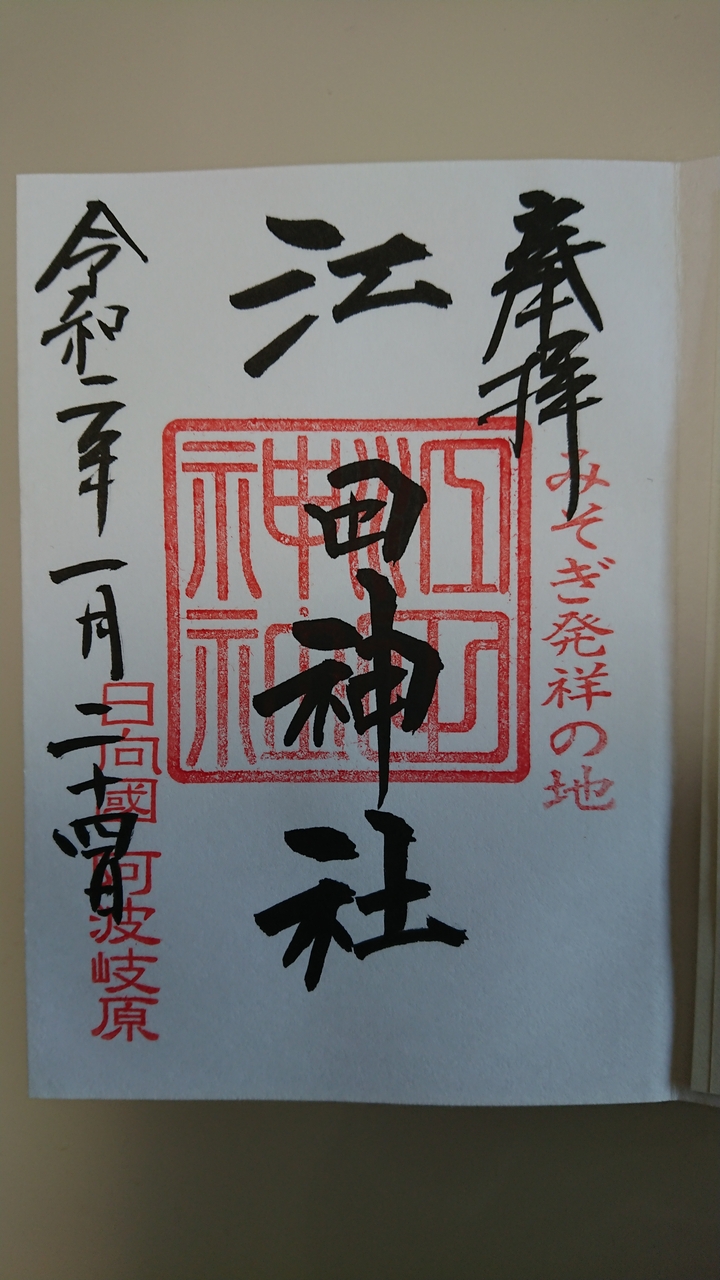 奉拝
みそぎ発祥の地
江田神社
江田神社
令和二年一月二十四日
日向國阿波岐原